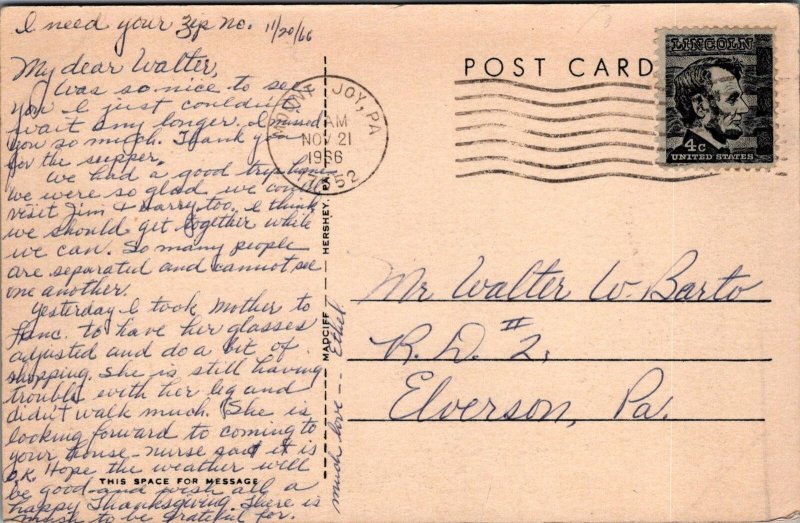 I need your zip no. 11/20/66
My dear Walter,
Was so nice to see
you I just couldn't
wait any longer. I missed
you so much. Thank you
for the supper.
We had a good trip home
we were so glad we could
visit Jim & Harry, too. I think
we should get together while
we can. So many people
are separated and cannot see
one another.
Yesterday I took Mother to
Lanc. to have her glasses
adjusted and do a bit of
shopping. She is still having
trouble with her leg and
didn't walk much. She is
looking forward to coming to
your house - nurse said it is
O.K. Hope the weather will
be good and wish all a
happy Thanksgiving. There is
much to be grateful for.
much love -- Ethel
THIS SPACE FOR MESSAGE
MADCIFF HERSHEY, PA
POST CARD
JOY, PA
AM
NOV 21
1966
17552
LINCOLN
4c
UNITED STATES
Mr Walter W. Barto
R. D. #2,
Elverson, Pa.